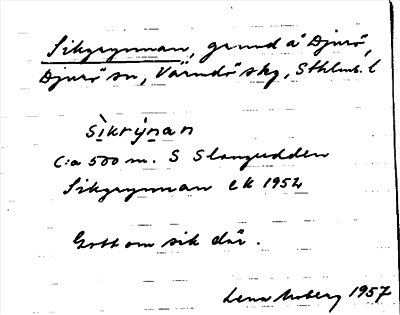 Sikgrynnan, grund å Djurö,
Djurö sn, Värmdö skg, Sthlms. l
sìkrýnan
C:a 500 m. S Slangudden
Sikgrynnan ek 1952
Gott om sik där.
Lena Moberg 1957